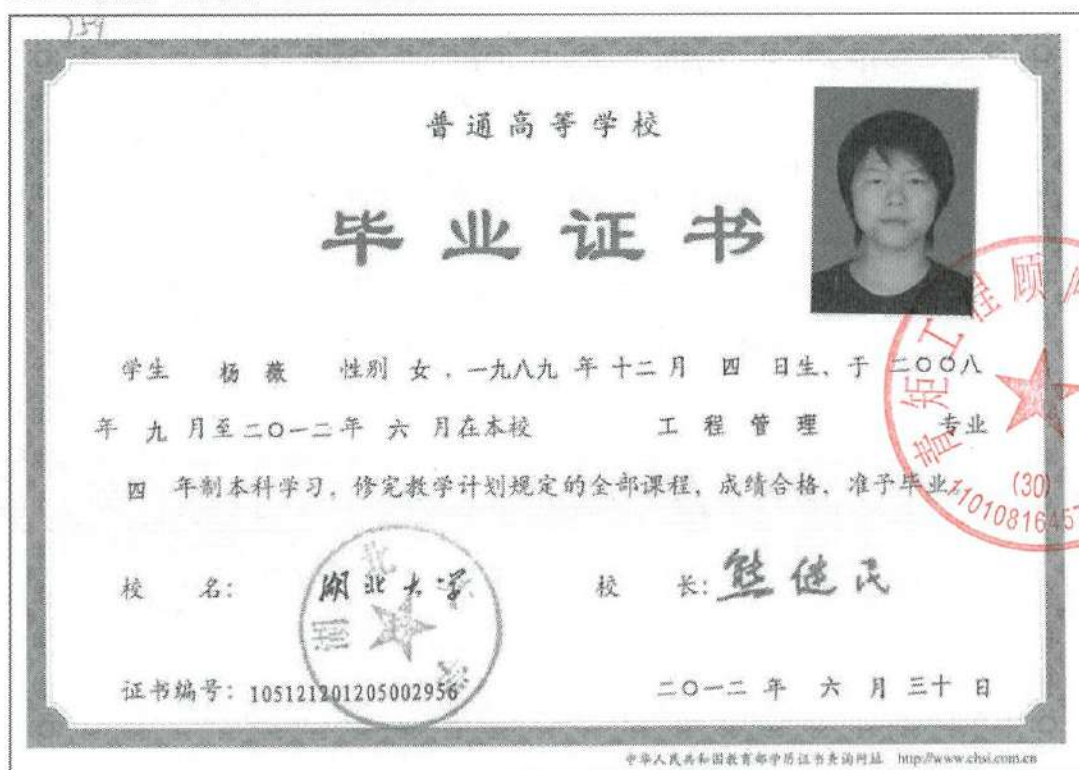 759
普通高等学校
毕业证书
学生 杨薇 性别 女，一九八九 年 十二 月 四 日生、于 二〇〇八
年 九 月至 二〇一二 年 六 月在本校 工程管理 专业
四 年制本科学习，修完教学计划规定的全部课程，成绩合格，准予毕业。
校 名：湖北大学 校 长：熊健民
湖北
证书编号：105121201205002956 二〇一二 年 六 月 三十 日
中华人民共和国教育部学历证书查询网址 http://www.chsi.com.cn
矩工程顾
(30)
1101081645